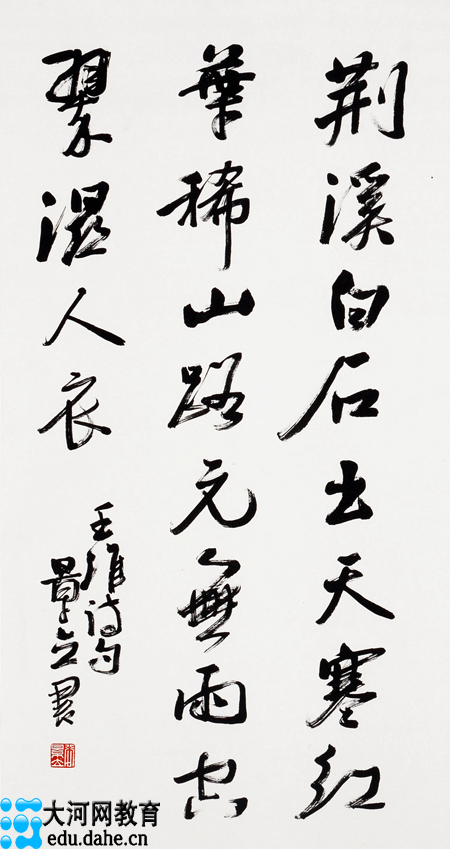 荆溪白石出天寒红
葉稀山路元無雨空
翠濕人衣
王維诗句
大河网教育
edu.dahe.cn